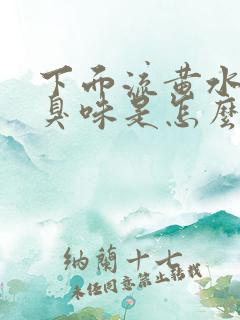 下而流黄水
臭味是怎麽
納蘭十七
未经同意禁止转载